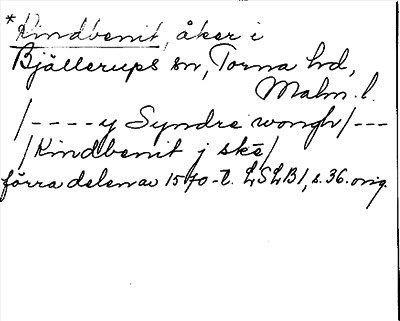 *Kindbenit, åker i
Bjällerups sn, Torna hd,
Malm. l.
/----y Syndre wongh/---
/Kindbenit j skē/
förra delen av 1570-t. LSLB1, s. 36. orig.